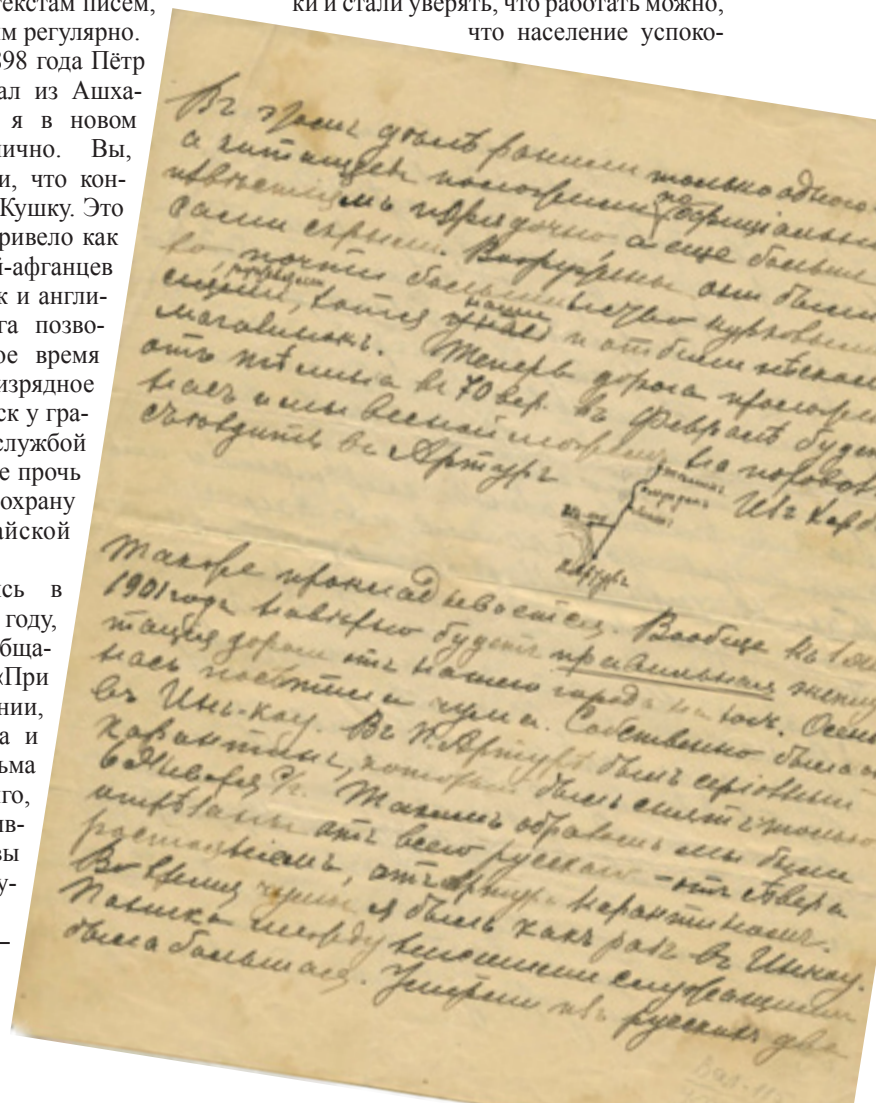 екстам писем,
м регулярно.
898 года Пётр
ал из Ашха-
я в новом
ично. Вы,
и, что кон-
Кушку. Это
ривело как
й-афганцев
к и англи-
га позво-
ое время
изрядное
ск у гра-
службой
е прочь
охрану
айской
сь в
году,
бща-
«При
нии,
а и
ьма
го,
ив-
вы
у-
ки и стали уверять, что работать можно,
что население успоко-
Въ этомъ дѣлѣ ранили только одного
а китайцевъ положили по официальнымъ
извѣстіямъ порядочно, а еще больше
сами скрыли. Вооружены они были
почти
хотя наши и отбили нѣсколько
Теперь дорога проложена
въ 70 вер. въ Февралѣ будетъ
насъ и мы весной можемъ на
съѣздить въ Артуръ
Артуръ
также прокладывается. Вообще къ 1
1901 года навѣрно будетъ правильная
дороги отъ нашего города на югъ.
насъ посѣтила чума. Собственно была
въ Инъ-коу. Въ П. Артурѣ былъ
карантинъ, который былъ снятъ только
6 Января Такимъ образомъ мы были
отрѣзаны отъ всего русскаго - отъ сѣвера
разстояніемъ, отъ Артура карантиномъ.
Во время чумы я былъ какъ разъ въ Инкоу.
Паника между служащими
была большая. Умерли изъ русскихъ два